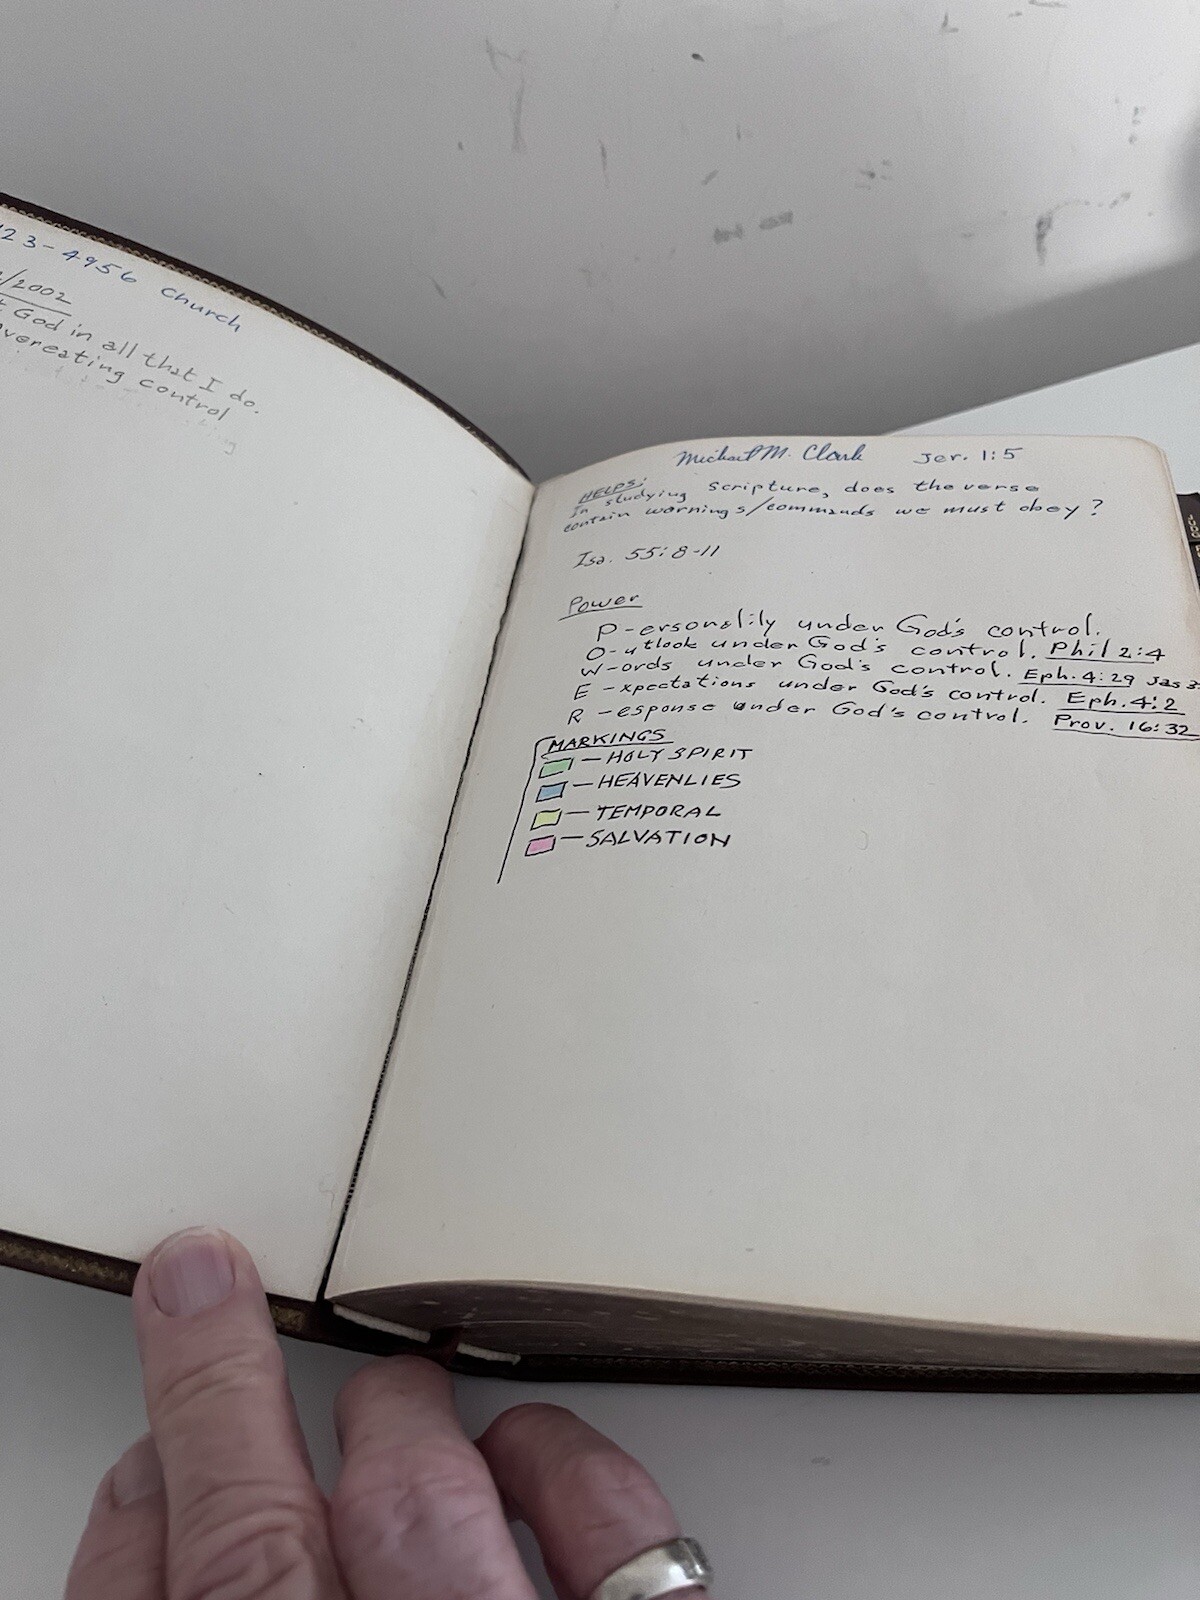 23-4956 Church
/2002
t God in all that I do.
overeating control
Michael M. Clark Jer. 1:5
HELPS:
In studying scripture, does the verse
contain warnings/commands we must obey?
Isa. 55:8-11
Power
P-ersonality under God's control.
O-utlook under God's control. Phil 2:4
W-ords under God's control. Eph. 4:29 Jas 3:
E-xpectations under God's control. Eph. 4:2
R-esponse under God's control. Prov. 16:32
MARKINGS
—HOLY SPIRIT
—HEAVENLIES
—TEMPORAL
—SALVATION